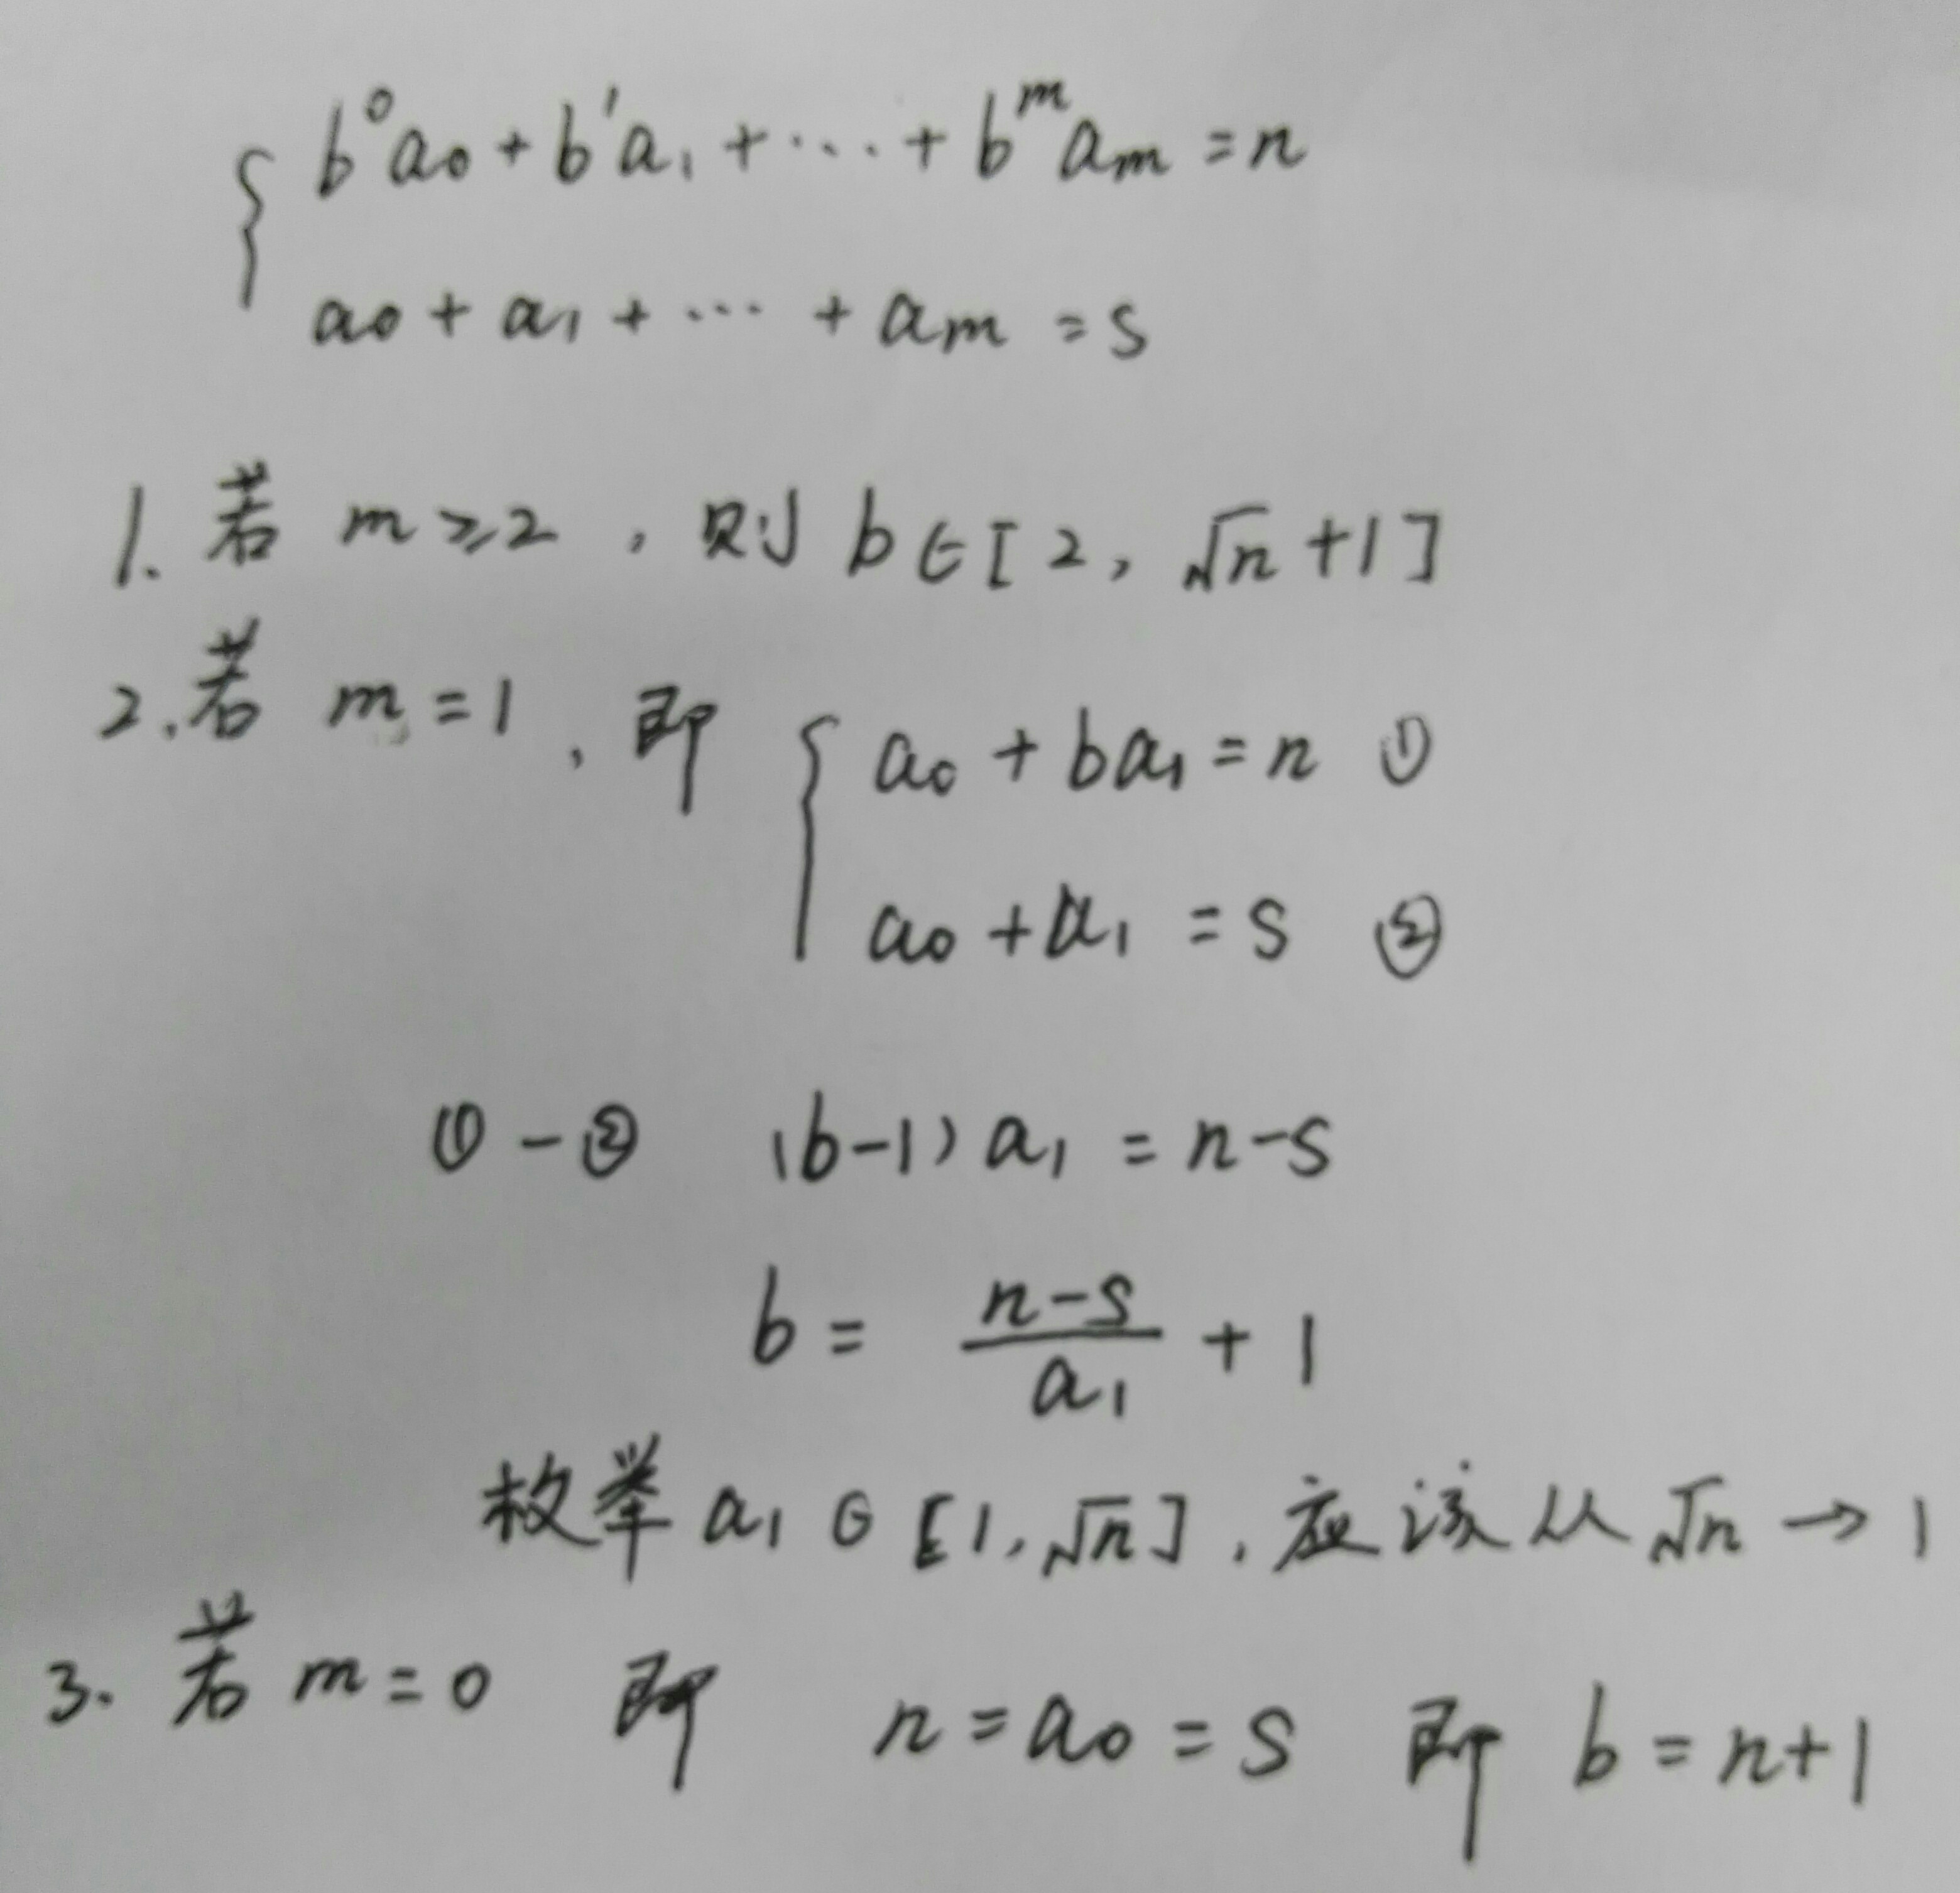 { b⁰a₀ + b¹a₁ + ··· + bᵐaₘ = n
a₀ + a₁ + ··· + aₘ = s
1. 若 m ≥ 2 , 则 b ∈ [ 2, √n + 1 ]
2. 若 m = 1 , 即 { a₀ + ba₁ = n ①
a₀ + a₁ = s ②
① - ② (b-1) a₁ = n-s
b = \frac{n-s}{a₁} + 1
枚举 a₁ ∈ [1, √n] , 应该从 √n → 1
3. 若 m = 0 即 n = a₀ = s 即 b = n+1